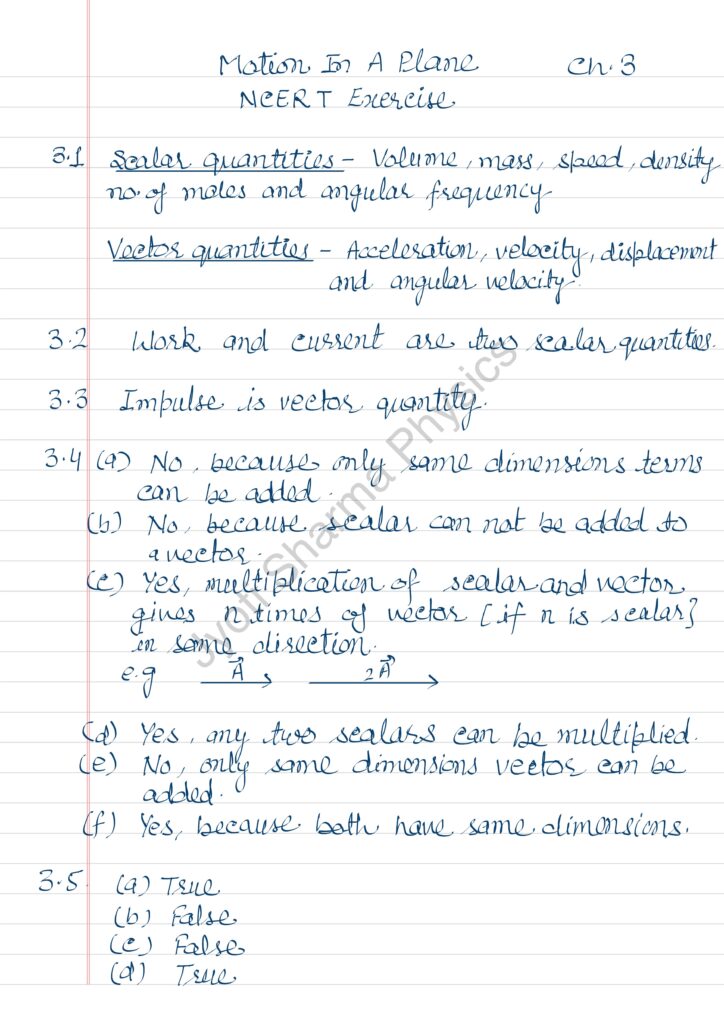 Motion In A Plane Ch. 3
NCERT Exercise
3.1 Scalar quantities - Volume, mass, speed, density
no. of moles and angular frequency
Vector quantities - Acceleration, velocity, displacement
and angular velocity.
3.2 Work and current are two scalar quantities.
3.3 Impulse is vector quantity.
3.4 (a) No, because only same dimensions terms
can be added.
(b) No, because scalar can not be added to
a vector.
(c) Yes, multiplication of scalar and vector
gives n times of vector [if n is scalar}
in same direction.
e.g A⃗ 2A⃗
(d) Yes, any two scalars can be multiplied.
(e) No, only same dimensions vector can be
added.
(f) Yes, because both have same dimensions.
3.5. (a) True
(b) False
(c) False
(d) True
Jyoti Sharma Physics